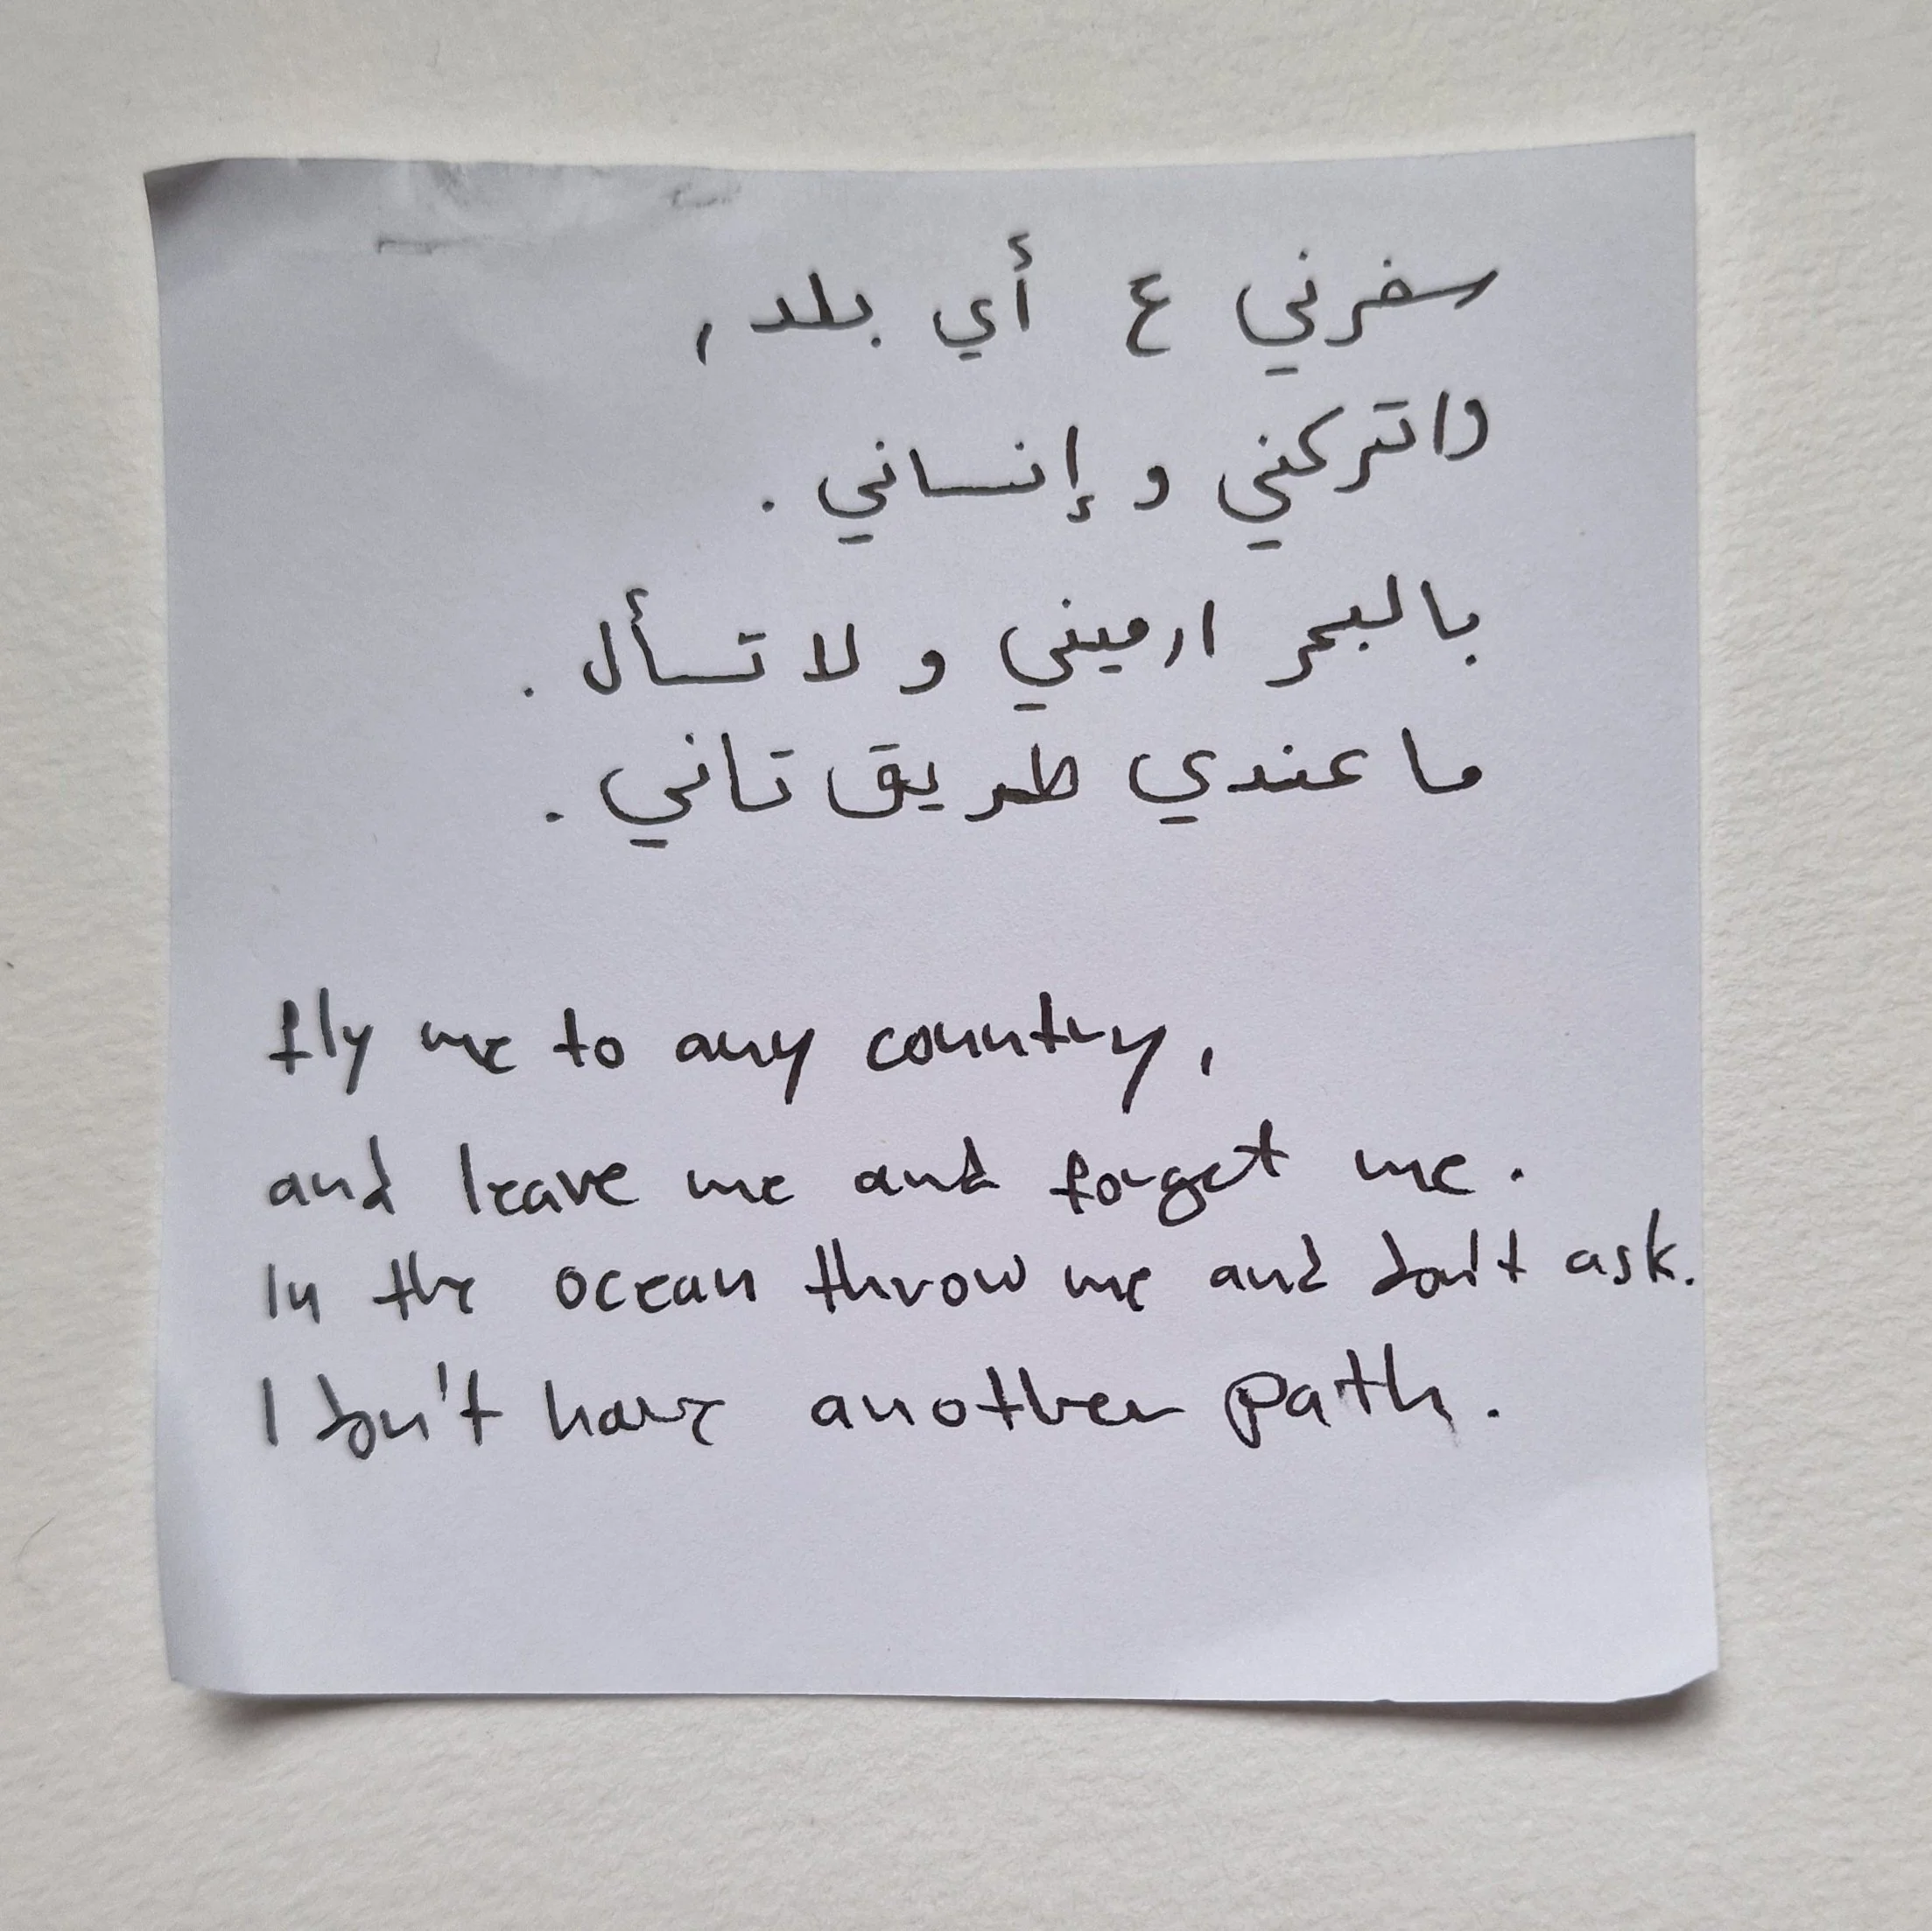 سفرني ع أي بلد,
واتركني و إنساني.
بالبحر ارميني و لا تسأل.
ما عندي طريق تاني.
fly me to any country,
and leave me and forget me.
In the ocean throw me and don't ask.
I don't have another path.